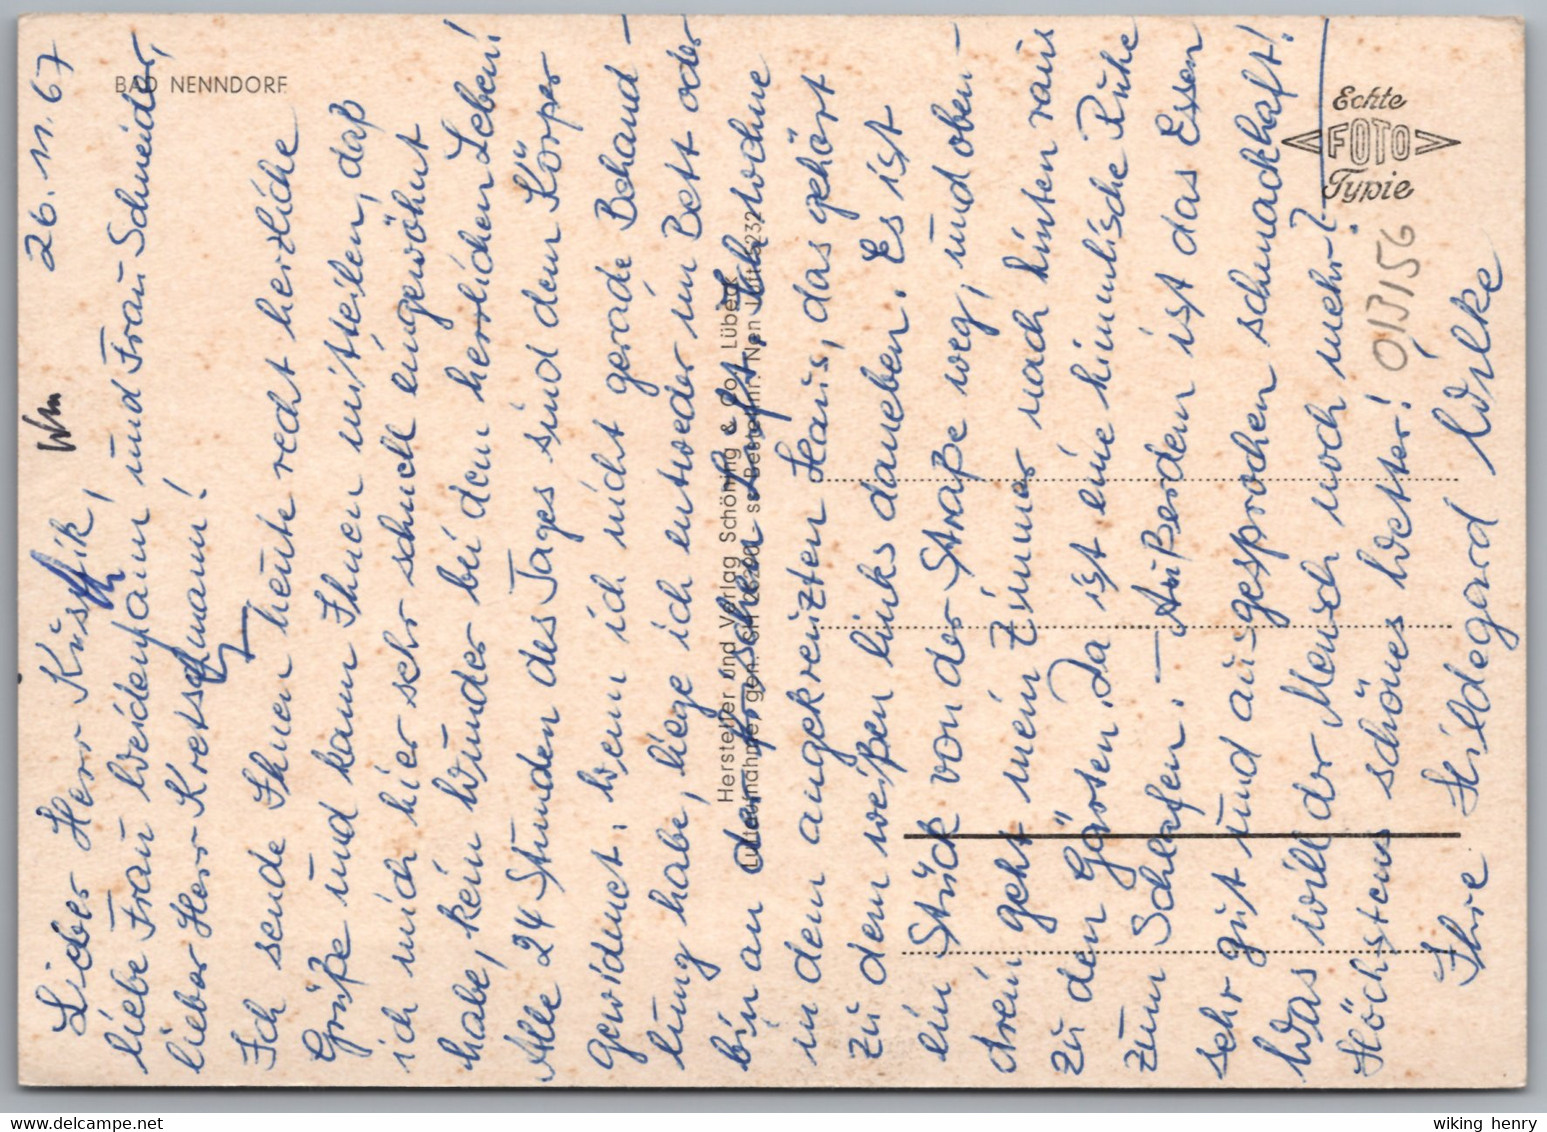 26.11.67
Wm
Lieber Herr Kustik,
liebe Frau Weidemann und Frau Schneider,
lieber Herr Kretschmann!
Ich sende Ihnen heute recht herzliche
Grüße und kann Ihnen mitteilen, daß
ich mich hier sehr schnell eingewöhnt
habe, kein Wunder bei dem herrlichen Leben!
Alle 24 Stunden des Tages sind dem Körper
gewidmet. Wenn ich nicht gerade Behand-
lung habe, liege ich entweder im Bett oder
bin an der frischen Luft. Ich wohne
in dem angekreuzten Haus, das gehört
zu dem weißen links daneben. Es ist
ein Stück von der Straße weg, und oben-
drein geht mein Zimmer nach hinten raus
zu den Gärten. Da ist eine himmlische Ruhe
zum Schlafen. – Außerdem ist das Essen
sehr gut und ausgesprochen schmackhaft!
Was will der Mensch noch mehr?
Höchstens schönes Wetter!
Ihre Hildegard Wilke
BAD NENNDORF
Hersteller und Verlag Schöning & Co., Lübeck
Echte
FOTO
Typie
013156
wiking henry